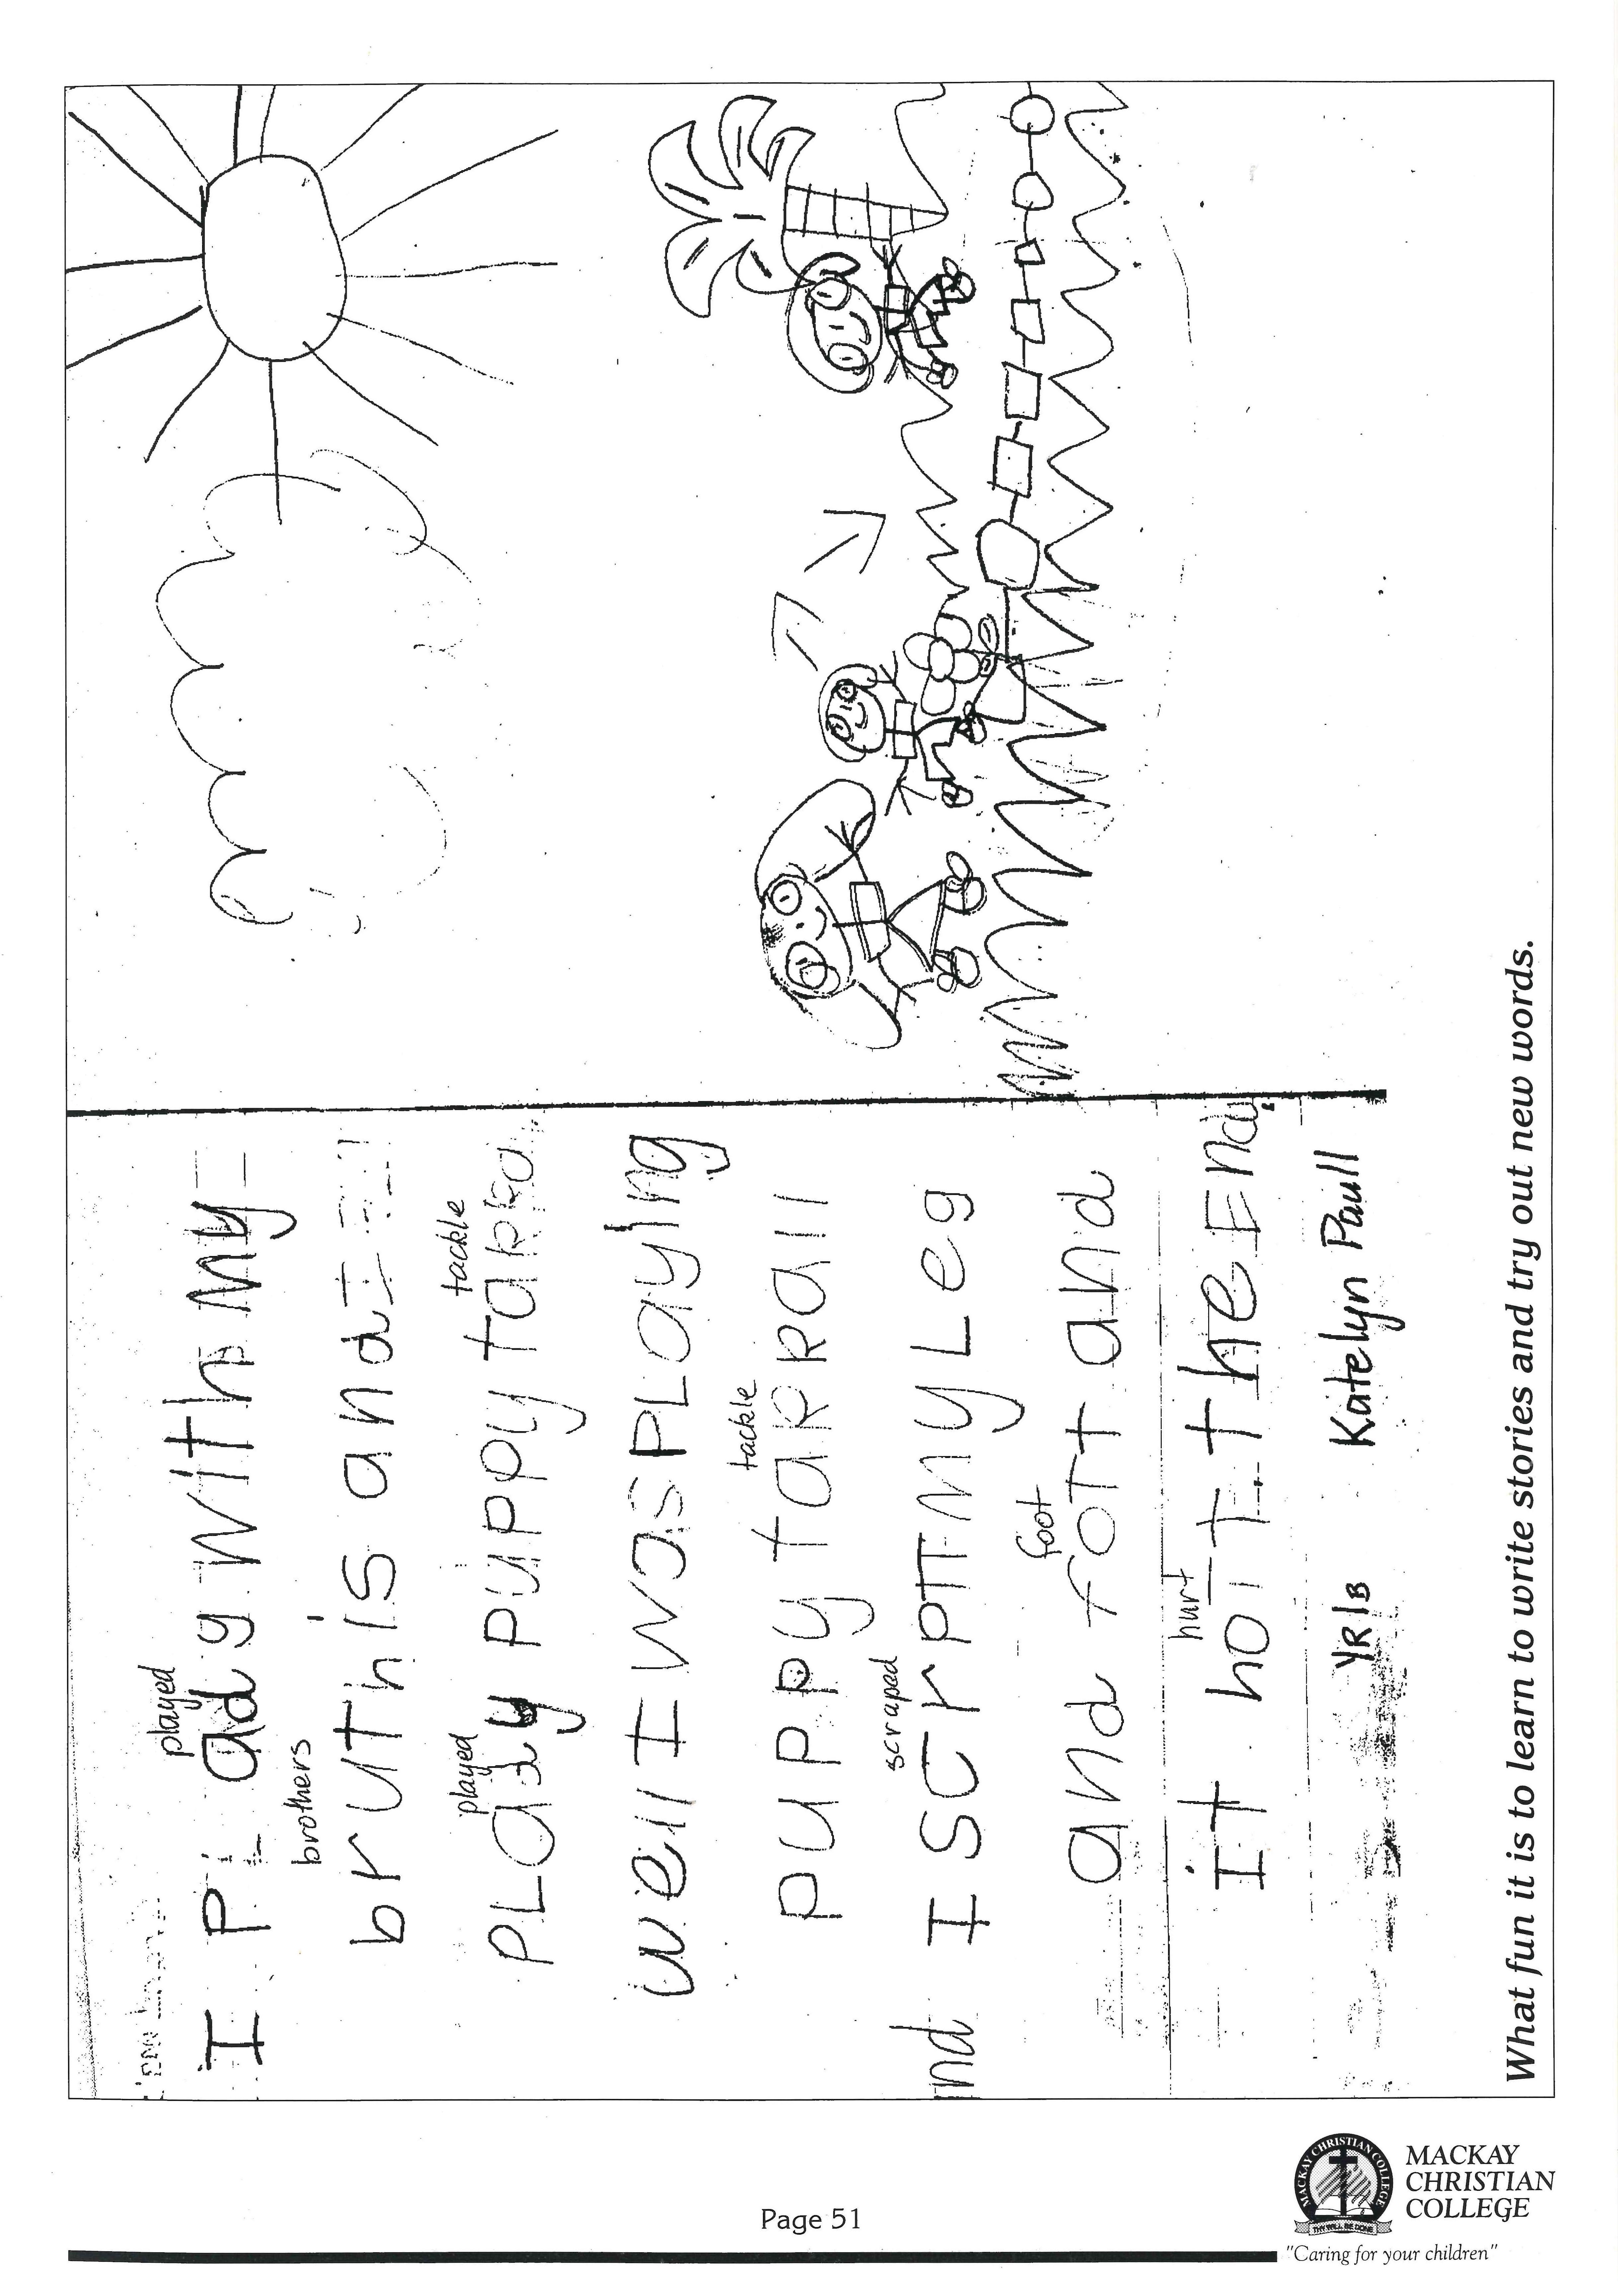 played
I PL ady with my
brothers
bruthis and I
played tackle
PLady puppy takRa
well I was PLaying
tackle
puppy takRall
scraped
and I scrPTT my Leg
foot
and fott and
hurt
it hot the End
YR 1B Katelyn Paull
What fun it is to learn to write stories and try out new words.
Page 51
MACKAY CHRISTIAN COLLEGE
THY WILL BE DONE
MACKAY
CHRISTIAN
COLLEGE
"Caring for your children"